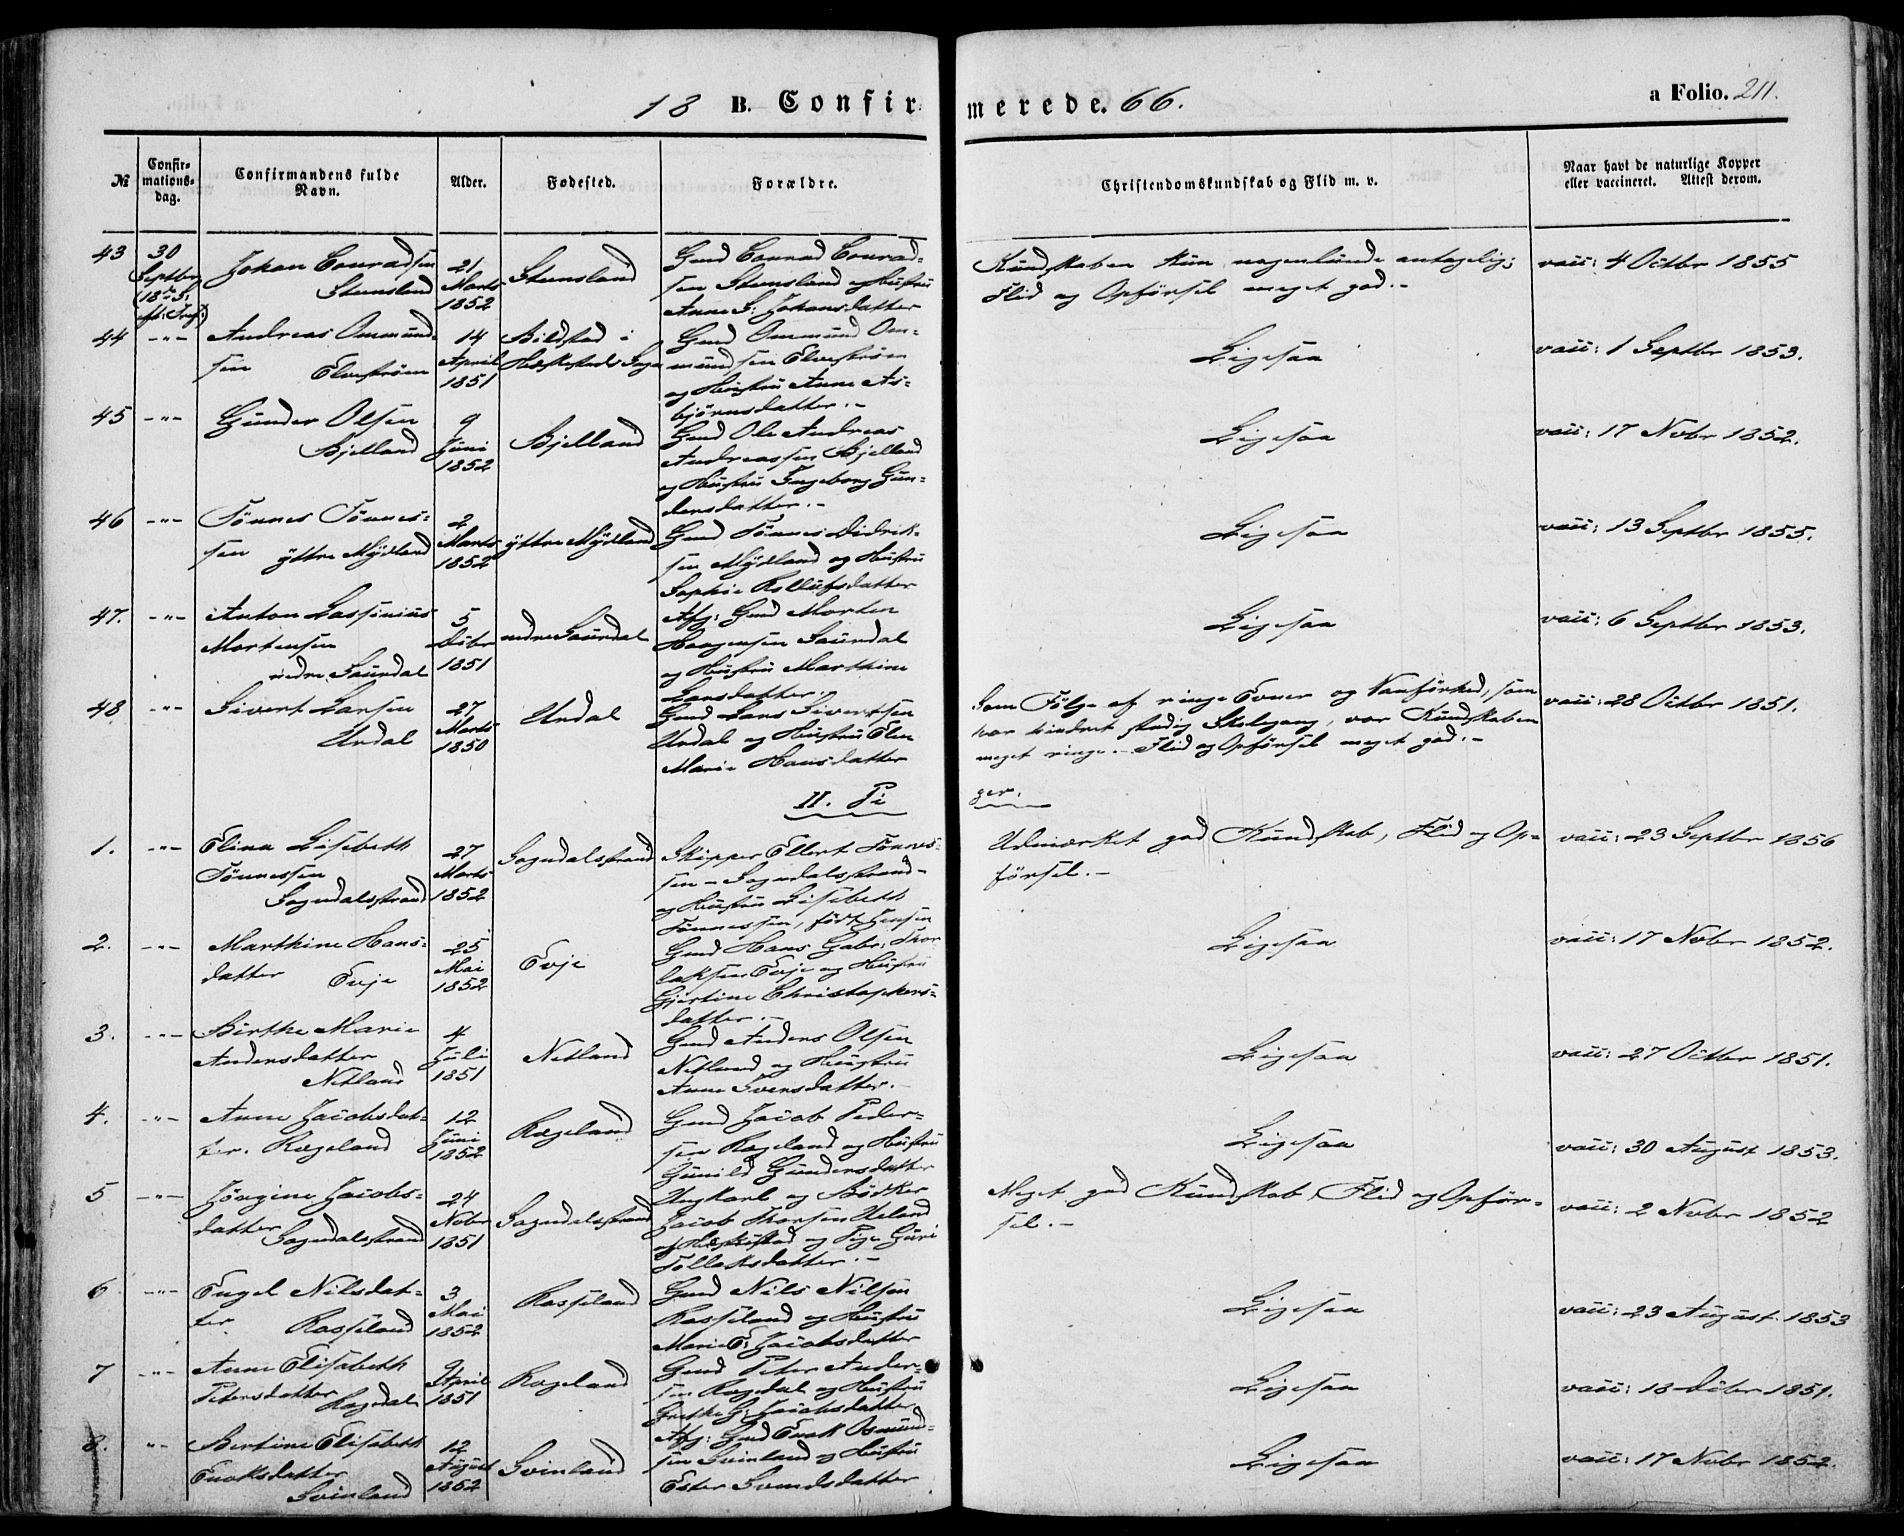 18 B. Confirmerede. 66. a Folio. 211.
№ Confirmations-dag. Confirmandens fulde Navn. Alder. Fødested. Forældre. Christendomskundskab og Flid m. v. Naar havt de naturlige Kopper eller vaccineret. Attest derom.
43 30 Septbr (18de S. eft: Tref:)
Johan Conradsen
Steensland
21 Marts 1852
Steensland
Gmd Conrad Conrad-
sen Steensland og Hustru
Anne S: Johansdatter
Kundskaben kun nogenlunde antagelig;
Flid og Opførsel meget god.-
vacc: 4 Octbr 1855
44 -"-
Andreas Ommund-
sen Elvestrøm
14 April 1851
Bilstad i
Hæskestads Sogn
Gmd Ommund Om-
mundsen Elvestrøm
og Hustru Anne As-
bjørnsdatter.-
Ligesaa
vacc: 1 Septbr 1853.
45 -"-
Gunder Olsen
Bjelland
9 Juni 1852
Bjelland
Gmd Ole Andreas
Andreassen Bjelland
og Hustru Ingeborg Gun-
dersdatter.-
Ligesaa
vacc: 17 Novbr 1852.
46 -"-
Tønnes Tønnes-
sen yttre Mydland
2 Marts 1852
yttre Mydland
Gmd Tønnes Didrik-
sen Mydland og Hustru
Sophie Rollufsdatter
Ligesaa
vacc: 13 Septbr 1855.
47. -"-
Anton Lassinius
Mortensen
nedre Saurdal
5 Dcbr 1851
nedre Saurdal
Afg: Gmd Morten
Haagensen Saurdal
og Hustru Marthine
Larsdatter.
Ligesaa
vacc: 6 Septbr 1853.
48 -"-
Sivert Larsen
Urdal
27 Marts 1850
Urdal
Gmd Lars Sivertsen
Urdal og Hustru Elen
Marie Hansdatter
Som Følge af ringe Evner og Vanførhed, som
har hindret stadig Skolegang, var Kundskaben
meget ringe.- Flid og Opførsel meget god.-
vacc: 28 Octbr 1851.
II. Pi ger.
1. -"-
Elina Lisebeth
Tønnessen
Sogndalsstrand
27 Marts 1852
Sogndalsstrand
Skipper Ellert Tønnes-
sen - Sogndalsstrand-
og Hustru Lisebeth
Tønnessen, født Jensen
Udmærket god Kundskab, Flid og Op-
førsel.-
vacc: 23 Septbr 1856
2. -"-
Marthine Hans-
datter Evje
25 Mai 1852
Evje
Gmd Hans Gabr: Thor
laksen Evje og Hustru
Gjertine Christophers-
datter.-
Ligesaa
vacc: 17 Novbr 1852.
3. -"-
Birthe Marie
Andersdatter
Netland
4 Juli 1851
Netland
Gmd Anders Olsen
Netland og Hustru
Anne Svensdatter.-
Ligesaa
vacc: 27 Octbr 1851.
4. -"-
Anne Jacobsdat-
ter. Rægeland
12 Juni 1852
Rægeland
Gmd Jacob Peder-
sen Rægeland og Hustru
Gunild Gundersdatter
Ligesaa
vacc: 30 August 1853.
5 -"-
Jørgine Jacobs-
datter
Sogndalsstrand
24 Novbr 1851
Sogndalsstrand
Ungkarl og Bødker
Jacob Thorsen Ueland
og Pige Guri
Tollaksdatter.-
Meget god Kundskab, Flid og Opfør-
sel.-
vacc: 2 Novbr 1852
6 -"-
Engel Nilsdat-
ter. Rosseland
3 Mai 1852
Rosseland
Gmd Nils Nilsen
Rosseland og Hustru
Marie E: Jacobsdatter
Ligesaa
vacc: 23 August 1853
7 -"-
Anne Elisabeth
Petersdatter
Rægdal
9 April 1851
Rægeland
Gmd Peter Ander-
sen Rægdal og Hustru
Grethe G: Jacobsdatter
Ligesaa
vacc: 18 Dcbr 1851.
8. -"-
Bertine Elisabeth
Enoksdatter
Svinland
12 August 1852
Svinland
Afg: Gmd Enok Osmund-
sen Svinland og Hustru
Ester Svendsdatter
Ligesaa
vacc: 17 Novbr 1852.